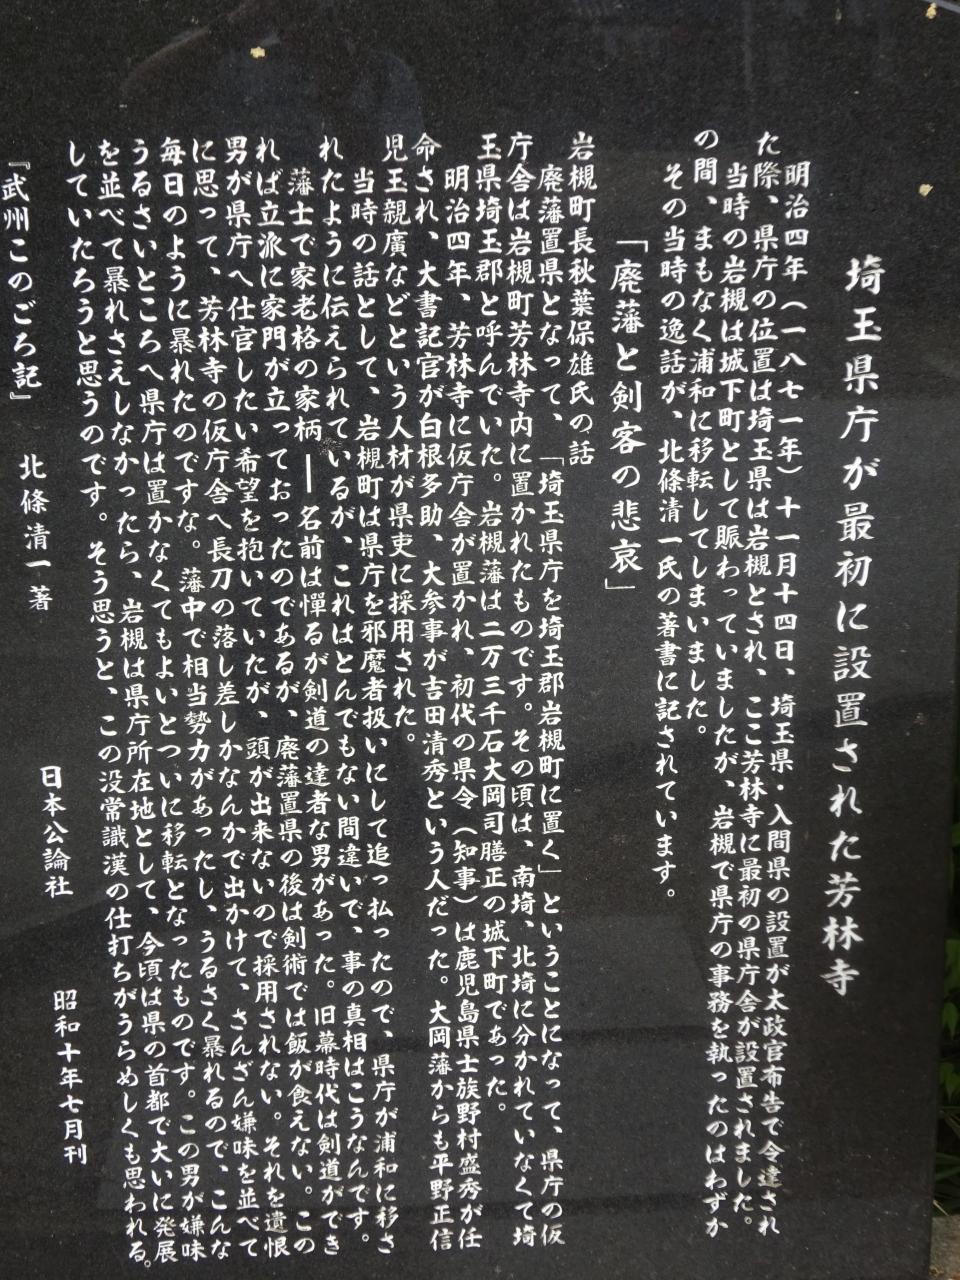 埼玉県庁が最初に設置された芳林寺
明治四年(一八七一年)十一月十四日、埼玉県・入間県の設置が太政官布告で令達され
た際、県庁の位置は埼玉県は岩槻とされ、ここ芳林寺に最初の県庁舎が設置されました。
当時の岩槻は城下町として賑わっていましたが、岩槻で県庁の事務を執ったのはわずか
の間、まもなく浦和に移転してしまいました。
その当時の逸話が、北條清一氏の著書に記されています。
「廃藩と剣客の悲哀」
岩槻町長秋葉保雄氏の話
廃藩置県となって、「埼玉県庁を埼玉郡岩槻町に置く」ということになって、県庁の仮
庁舎は岩槻町芳林寺内に置かれたものです。その頃は、南埼、北埼に分かれていなくて埼
玉県埼玉郡と呼んでいた。岩槻藩は二万三千石大岡司膳正の城下町であった。
明治四年、芳林寺に仮庁舎が置かれ、初代の県令(知事)は鹿児島県士族野村盛秀が任
命され、大書記官が白根多助、大参事が吉田清秀という人だった。大岡藩からも平野正信
児玉親廣などという人材が県吏に採用された。
当時の話として、岩槻町は県庁を邪魔者扱いにして追っ払ったので、県庁が浦和に移さ
れたように伝えられているが、これはとんでもない間違いで、事の真相はこうなんです。
藩士で家老格の家柄―名前は憚るが剣道の達者な男があった。旧幕時代は剣道ができ
れば立派に家門が立っておったのであるが、廃藩置県の後は剣術では飯が食えない。この
男が県庁へ仕官したい希望を抱いていたが、頭が出来ないので採用されない。それを遺恨
に思って、芳林寺の仮庁舎へ長刀の落し差しかなんかで出かけて、さんざん嫌味を並べて
毎日のように暴れたのですな。藩中で相当勢力があったし、うるさく暴れるので、こんな
うるさいところへ県庁は置かなくてもよいとついに移転となったものです。この男が嫌味
を並べて暴れさえしなかったら、岩槻は県庁所在地として、今頃は県の首都で大いに発展
していたろうと思うのです。そう思うと、この没常識漢の仕打ちがうらめしくも思われる。
『武州このごろ記』 北條清一著 日本公論社 昭和十年七月刊